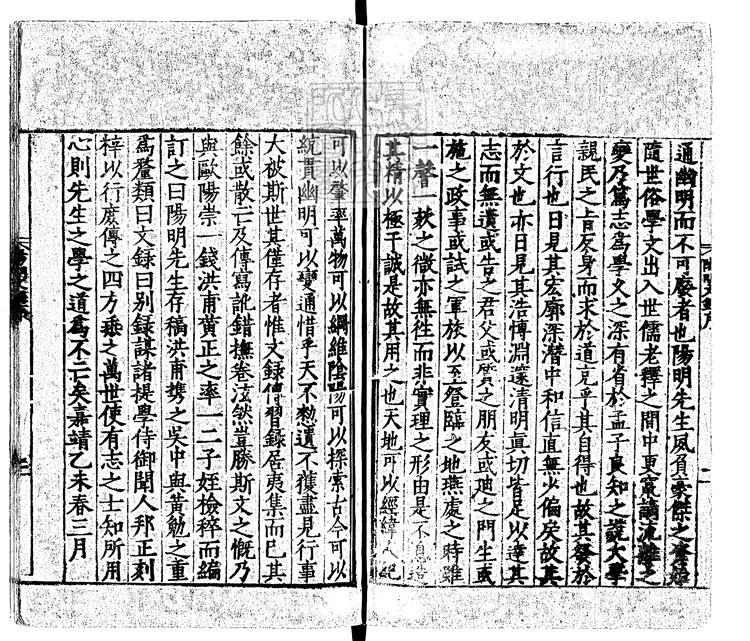 通幽明而不可廢者也陽明先生夙負豪傑之資雖
隨世俗學文出入世儒老釋之間中更竄謫流離之
變乃篤志為學久之深有省於孟子良知之說大學
親民之旨反身而求於道充乎其自得也故其發於
言行也日見其宏廓深潛中和信直無少偏戾故其
於文也亦日見其浩博淵邃清明真切皆足以達其
志而無遺或告之君父或質之朋友或迪之門生或
施之政事或試之軍旅以至登臨之地燕處之時雖
一聲一欬之微亦無往而非實理之形由是不息造
其精以極于誠是故其用之也天地可以經緯人紀
可以肇率萬物可以綱維陰陽可以探索古今可以
統貫幽明可以變通惜乎天不憖遺不獲盡見行事
大被斯世其僅存者惟文錄傳習錄居夷集而已其
餘或散亡及傳寫訛錯撫卷泫然豈勝斯文之慨乃
與歐陽崇一錢洪甫黃正之率一二子姪檢稡而編
訂之曰陽明先生存稿洪甫攜之吳中與黃勉之重
為釐類曰文錄曰別錄謀諸提學侍御聞人邦正刻
梓以行庶傳之四方垂之萬世使有志之士知所用
心則先生之學之道為不亡矣嘉靖乙未春三月